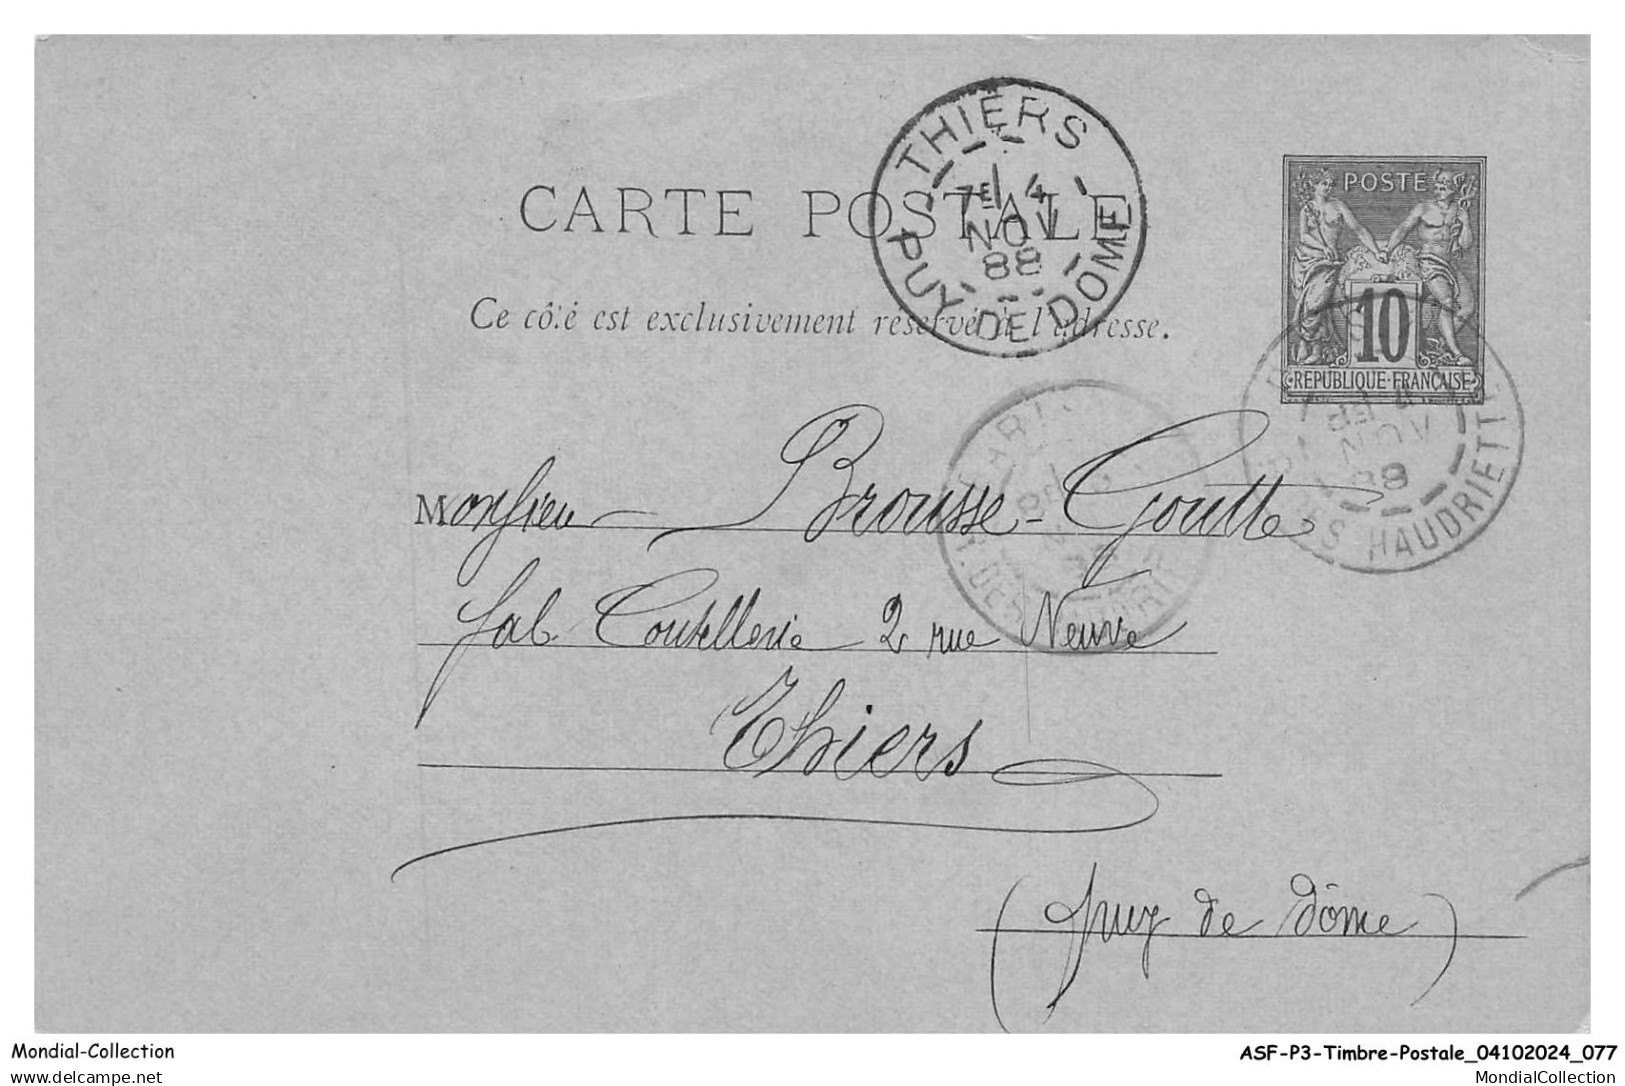 THIERS
7E 4
NOV
88
PUY-DE-DÔME
CARTE POSTALE
Ce côté est exclusivement réservé à l'adresse.
POSTE
10
REPUBLIQUE FRANÇAISE
NOV
88
DES HAUDRIETTE
Monsieur Brousse-Goutte
fab. Coutellerie 2 rue Neuve
Thiers
(Puy de Dôme)
Mondial-Collection
ASF-P3-Timbre-Postale_04102024_077
delcampe.net
MondialCollection